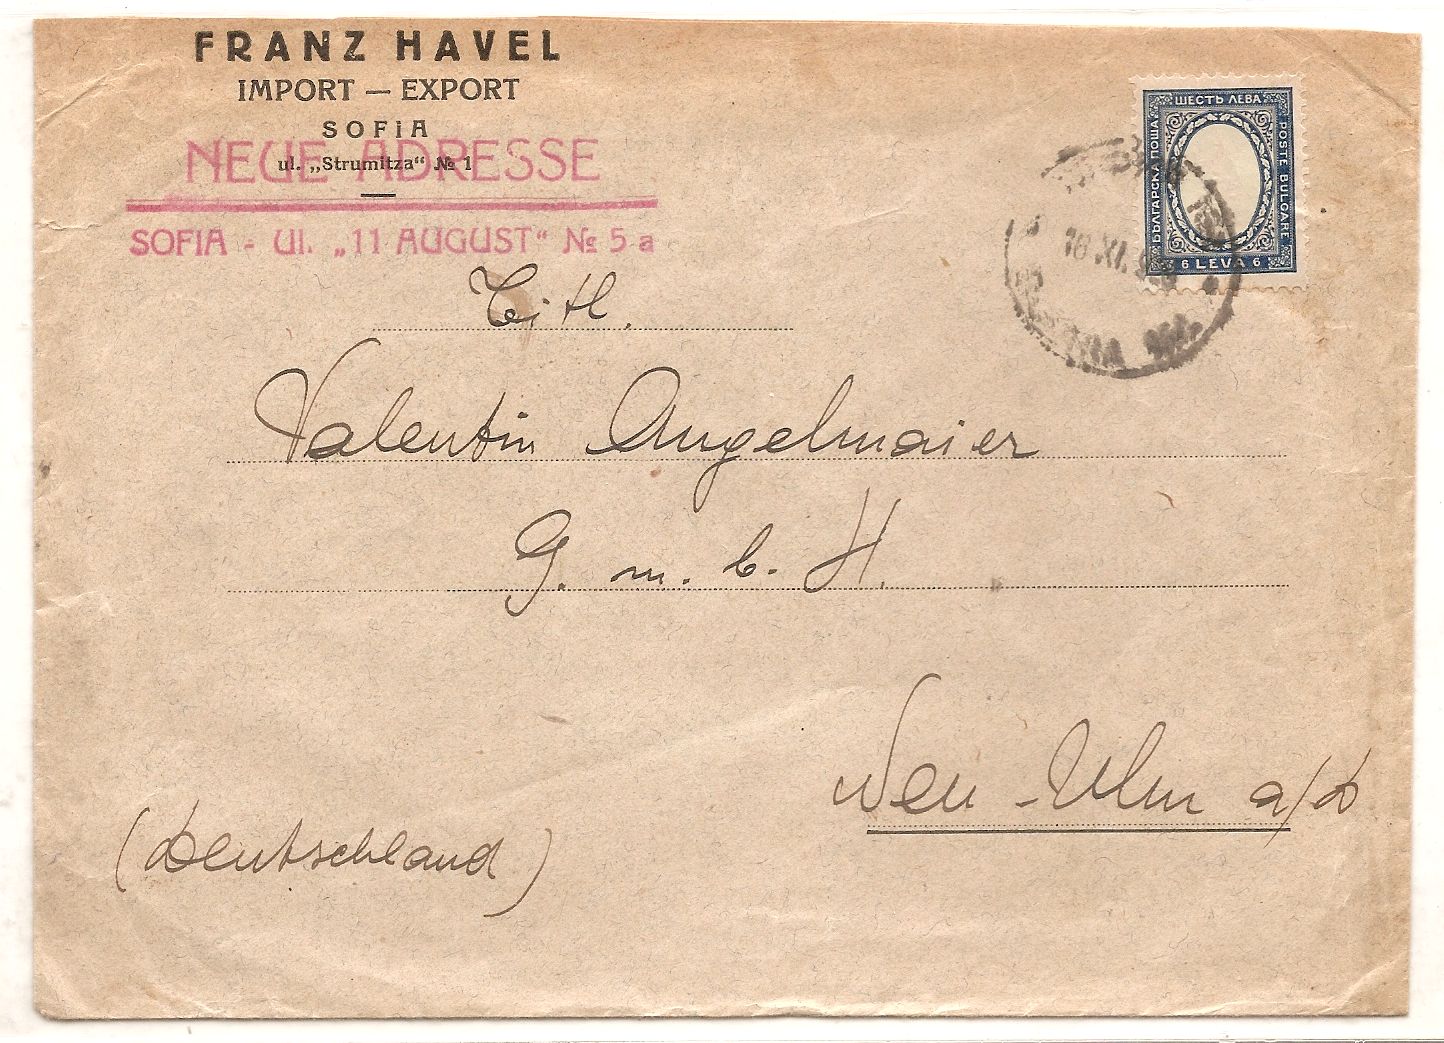 FRANZ HAVEL
IMPORT — EXPORT
SOFIA
ul. „Strumitza“ № 1
NEUE ADRESSE
SOFIA - Ul. „11 AUGUST“ № 5 a
ШЕСТЬ ЛЕВА
БЪЛГАРСКА ПОЩА
POSTE BULGARE
6 LEVA 6
Titl.
Valentin Angelmaier
G. m. b. H.
Neu-Ulm a/D
(Deutschland)